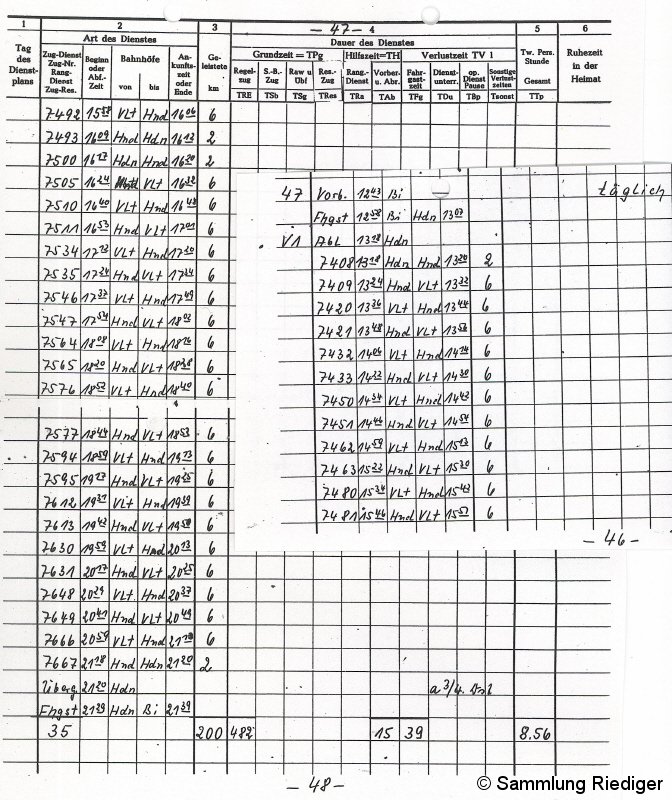 - 47 -
1 2 3 4 5 6
Tag des Dienst- plans
Art des Dienstes
Zug-Dienst Zug-Nr. Rang-Dienst Zug-Res.
Beginn oder Abf.- Zeit
Bahnhöfe von bis
An- kunfts- zeit oder Ende
Ge- leistete km
Dauer des Dienstes
Grundzeit = TPg Hilfszeit=TH Verlustzeit TV 1
Regel- zug S.-B.- Zug Raw u Ubf Res.- Zug Rang.- Dienst Vorber. u. Abr. Fahr- gast- zeit Dienst- unterr. op. Dienst Pause Sonstige Verlust- zeiten
TRE TSb TSg TRes TRa TAb TFg TDu TBp Tsonst
Tw. Pers. Stunde Gesamt TTp
Ruhezeit in der Heimat
7492 15 58 VLt Hnd 16 06 6
7493 16 09 Hnd Hdn 16 12 2
7500 16 17 Hdn Hnd 16 20 2
7505 16 24 VLt 16 32 6
7510 16 40 VLt Hnd 16 48 6
7511 16 53 Hnd VLt 17 01 6
7534 VLt Hnd 17 30 6
7535 Hnd VLt 6
7546 17 37 VLt Hnd 6
7547 17 54 Hnd VLt 18 02 6
7564 18 08 VLt Hnd 18 16 6
7565 Hnd VLt 6
7576 VLt Hnd 18 40 6
7577 18 44 Hnd VLt 18 53 6
7594 18 59 VLt Hnd 6
7595 Hnd VLt 6
7612 19 31 VLt Hnd 19 39 6
7613 19 42 Hnd VLt 19 50 6
7630 19 59 VLt Hnd 20 13 6
7631 20 17 Hnd VLt 20 25 6
7648 20 29 VLt Hnd 20 37 6
7649 20 41 Hnd VLt 20 49 6
7666 20 59 VLt Hnd 6
7667 21 18 Hnd Hdn 21 20 2
Überg 21 20 Hdn a 3/4.
Fhgst 21 29 Hdn Bi 21 39
35 200 482 15 39 8.56
- 48 -
47 Vorb. 12 43 Bi täglich
Fhgst 12 58 Bi Hdn 13 07
V1 AbL 13 18 Hdn
7408 13 18 Hdn Hnd 13 20 2
7409 13 24 Hnd VLt 13 32 6
7420 13 36 VLt Hnd 13 44 6
7421 13 48 Hnd VLt 13 56 6
7432 14 06 VLt Hnd 14 14 6
7433 14 22 Hnd VLt 14 30 6
7450 14 34 VLt Hnd 14 42 6
7451 14 46 Hnd VLt 14 54 6
7462 14 59 VLt Hnd 15 13 6
7463 Hnd VLt 15 30 6
7480 15 34 VLt Hnd 15 42 6
7481 Hnd VLt 6
- 46 -
© Sammlung Riediger